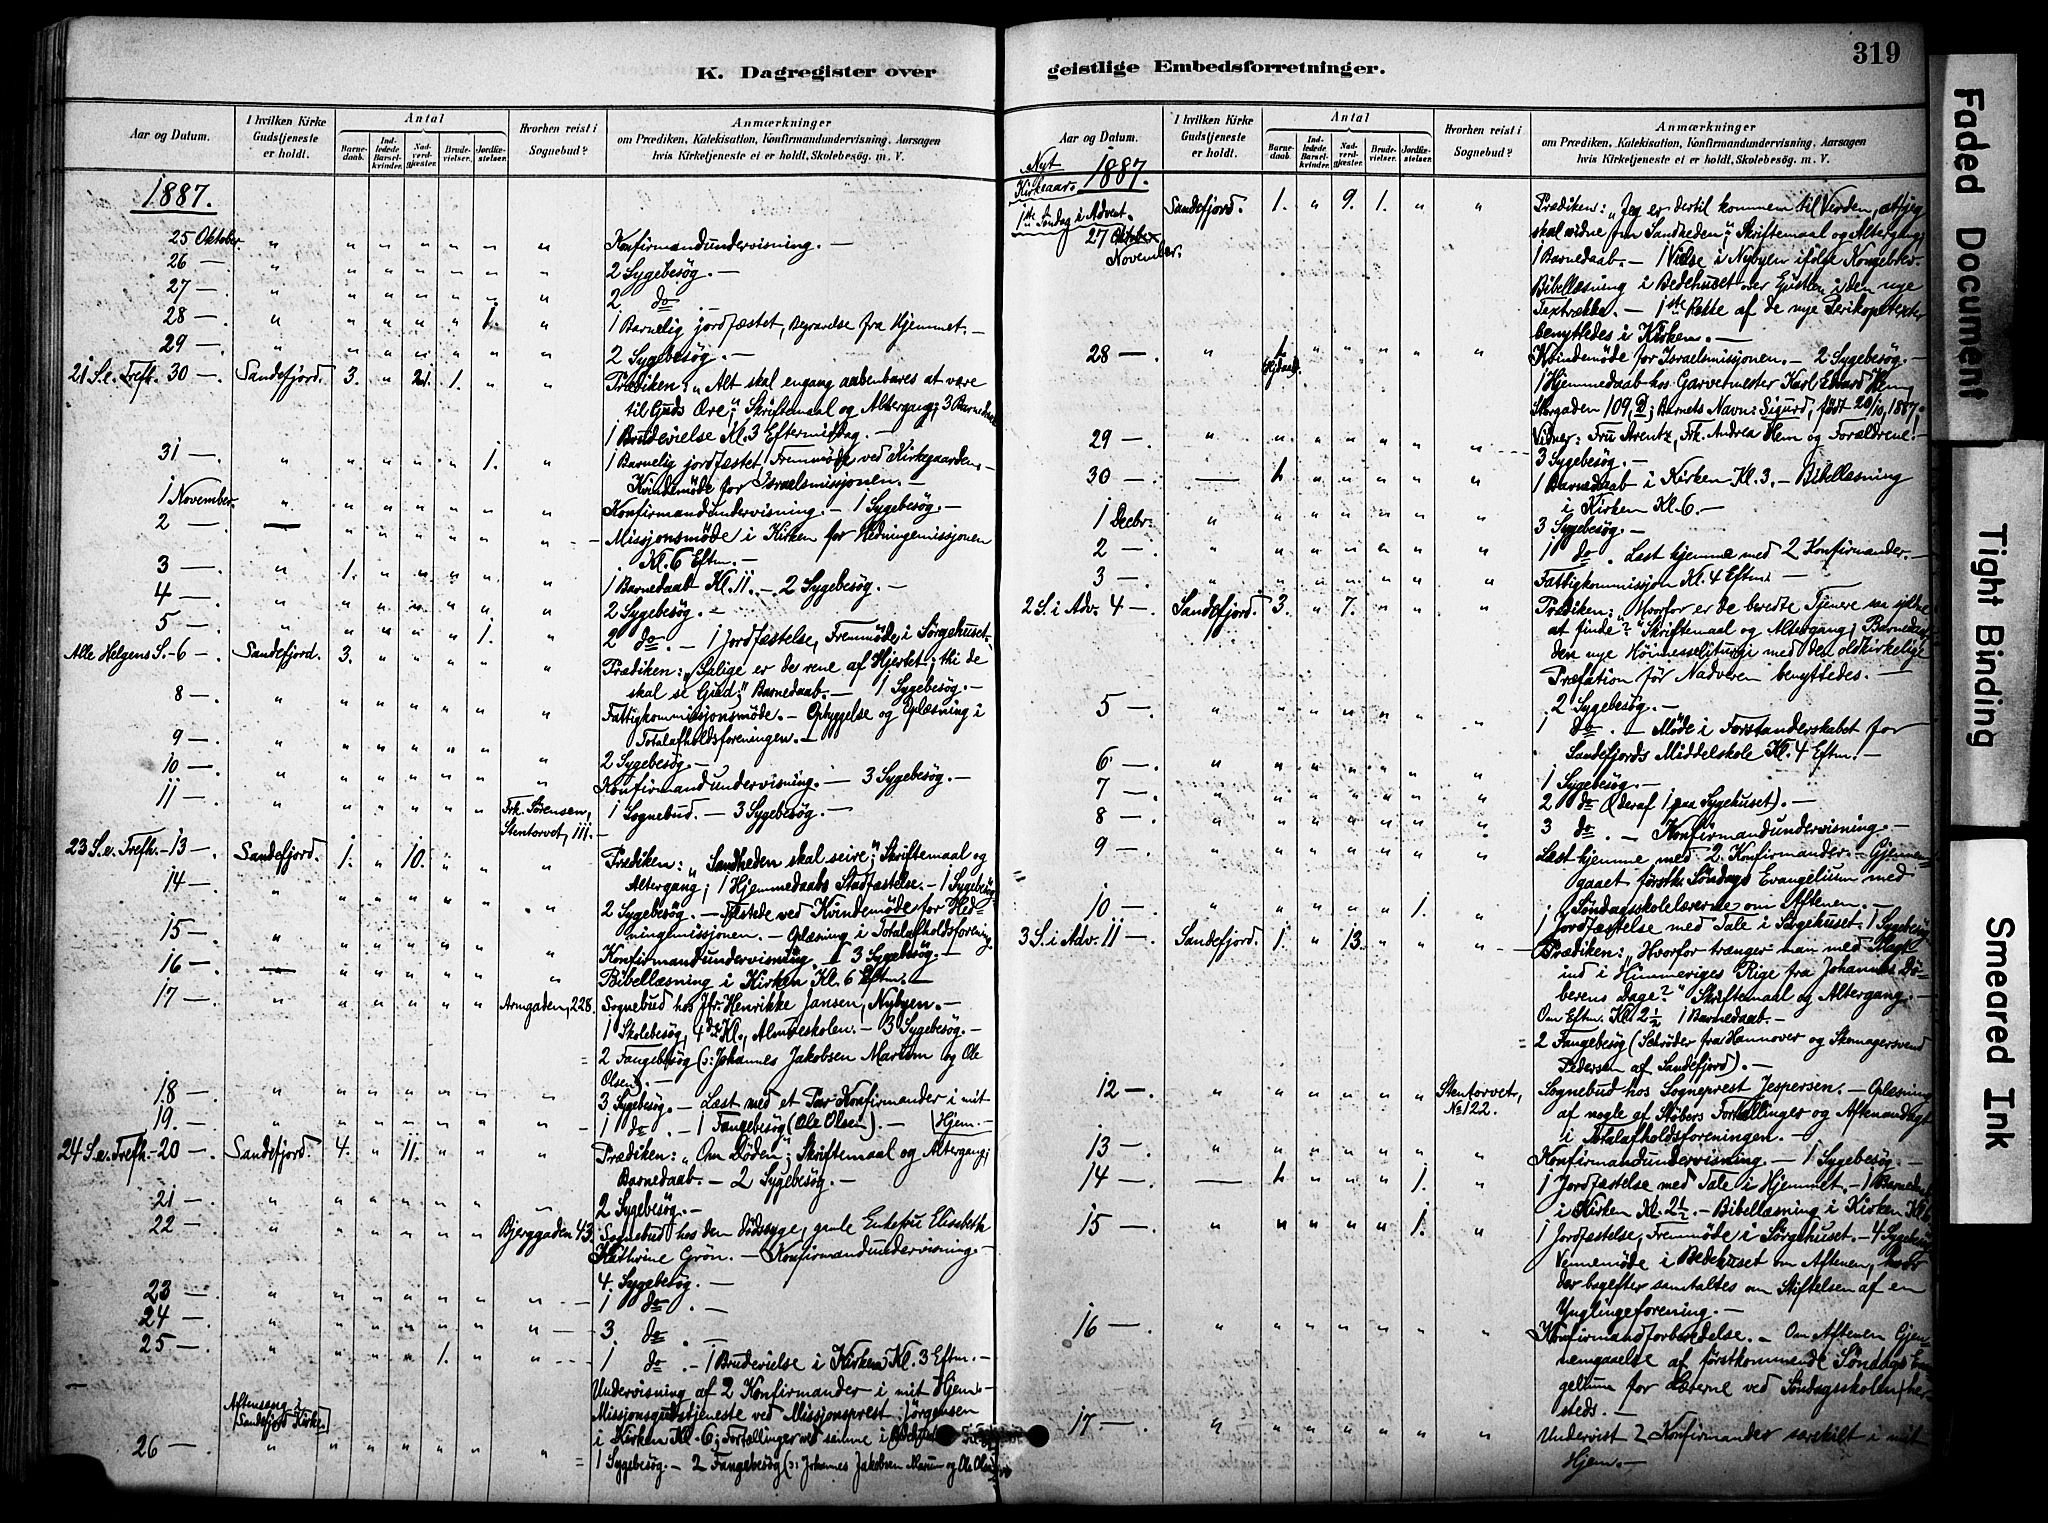 K. Dagregister over
Aar og Datum.
I hvilken Kirke Gudstjeneste er holdt.
Antal
Barnedaab.
Indledede Barselkvinder.
Nadverdgjæster.
Brudevielser.
Jordfæstelser.
Hvorhen reist i Sognebud?
Anmærkninger
om Prædiken, Katekisation, Konfirmandundervisning, Aarsagen
hvis Kirketjeneste ei er holdt, Skolebesøg. m. V.
1887.
25 Oktober. " " " " " " " Konfirmandundervisning. —
26 — " " " " " " " 2 Sygebesøg. —
27 — " " " " " " " 2 do —
28 — " " " " " 1. " 1 Barnelig jordfæstet, Begravelse fra Hjemmet. —
29 — " " " " " " " 2 Sygebesøg. —
21 S. e. Trefh. 30 — Sandefjord. 3. " 21. 1. " " Prædiken: "Alt skal engang aabenbares at være
til Guds Ære"; Skriftemaal og Altergang; 3 Barnedaab
1 Brudevielse Kl. 3 Eftermiddag. —
31 — " " " " " 1. " 1 Barnelig jordfæstet, Fremmøde ved Kirkegaarden. —
Kvindemøde for Israelsmissjonen. —
1 November. " " " " " " " Konfirmandundervisning. — 1 Sygebesøg. —
2 — — " " " " " " Missjonsmøde i Kirken for Hedningemissjonen
Kl. 6 Eftm. —
3 — " 1. " " " " " 1 Barnedaab Kl. 11. — 2 Sygebesøg. —
4 — " " " " " " " 2 Sygebesøg. —
5 — " " " " " 1. " 2 do. — 1 Jordfæstelse, Fremmøde i Sørgehuset. —
Alle Helgens S. - 6 — Sandefjord. 3. " " " " " Prædiken: "Salige er de rene af Hjertet; thi de
skal se Gud"; Barnedaab. — 1 Sygebesøg. —
8 — " " " " " " " Fattigkommissjonsmøde. — Ophyggelse og Oplæsning i
Totalafholdsforeningen. —
9 — " " " " " " " 2 Sygebesøg. —
10 — " " " " " " " Konfirmandundervisning. — 3 Sygebesøg. —
11 — " " " " " " Frk. Sørensen, 1 Sognebud. — 3 Sygebesøg. —
Stentorvet, 111. —
23 S. e. Trefh. - 13 — Sandefjord. 1. " 10. " " " Prædiken: "Sandheden skal seire"; Skriftemaal og
Altergang; 1 Hjemmedaabs Stadfæstelse. — 1 Sygebesøg
14 — " " " " " " " 2 Sygebesøg. — Tilstede ved Kvindemøde for Hed-
ningemissjonen. — Oplæsning i Totalafholdsforening.
15 — " " " " " " " Konfirmandundervisning. — 3 Sygebesøg. —
16 — — " " " " " " Bibellæsning i Kirken Kl. 6 Eftm. —
17 — " " " " " " Armgaden, 228. Sognebud hos Jfr. Henrikke Jansen, Nybyen. —
1 Skolebesøg, 4de Kl., Almueskolen. — 3 Sygebesøg. —
2 Fangebesøg (ɔ: Johannes Jakobsen Marum og Ole
Olsen). —
18 — " " " " " " " 3 Sygebesøg. — Læst med et Par Konfirmander i mit
19. — " " " " " " " 1 do. — 1 Fangebesøg (Ole Olsen). — [Hjem. —
24 S. e. Trefh. - 20 — Sandefjord. 4. " 11. " " " Prædiken: "Om Døden"; Skriftemaal og Altergang;
Barnedaab. — 2 Sygebesøg. —
21 — " " " " " " " 2 Sygebesøg. —
22 — " " " " " " Bjerggaden 43. Sognebud hos den dødssyge, gamle Enkefru Elisabeth
Kathrine Grøn. — Konfirmandundervisning. —
4. Sygebesøg. —
23 — " " " " " " " 1 do. —
24 — " " " " " " " 3. do. —
25 — " " " " 1. " " 1 do. — 1 Brudevielse i Kirken Kl. 3 Eftm. —
Undervisning af 2 Konfirmander i mit Hjem. —
Aftensang i [Sandefjord Kirke.] Missjonsgudstjeneste ved Missjonsprest Jørgensen
i Kirken Kl. 6; Fortællinger ved samme i Bedehuset
26 — " " " " " " " 1 Sygebesøg. — 2 Fangebesøg (ɔ: Johannes Jakobsen Marum og Ole Olsen)
geistlige Embedsforretninger.
319
Aar og Datum.
I hvilken Kirke Gudstjeneste er holdt.
Antal
Barnedaab.
Indledede Barselkvinder.
Nadverdgjæster.
Brudevielser.
Jordfæstelser.
Hvorhen reist i Sognebud?
Anmærkninger
om Prædiken, Katekisation, Konfirmandundervisning, Aarsagen
hvis Kirketjeneste ei er holdt, Skolebesøg. m. V.
Nyt Kirkeaar. 1887.
1ste Søndag i Advent. 27 Oktober November. Sandefjord. 1. " 9. 1. " " Prædiken: "Jeg er dertil kommen til Verden, at jeg
skal vidne om Sandheden"; Skriftemaal og Altergang;
1 Barnedaab. — 1 Vielse i Nybyen ifølge Kongebrev.
Bibellæsning i Bedehuset over Epistlen i den nye
Textrække. — 1ste Række af de nye Perikopetexter
benyttedes i Kirken. —
28 — " 1 Hjdaab. " " " " " Kvindemøde for Israelsmissjonen. — 2 Sygebesøg. —
1 Hjemmedaab hos Garvermester Karl Edvard Hem,
Storgaden 109, D; Barnets Navn: Sigurd, født 20/10, 1887;
Vidner: Fru Arentz, Frk. Andrea Hem og Forældrene. —
29 — " " " " " " " 3 Sygebesøg. —
30 — — 1. " " " " " 1 Barnedaab i Kirken Kl. 3. — Bibellæsning
i Kirken Kl. 6. —
1 Decbr: " " " " " " " 3 Sygebesøg. —
2 — " " " " " " " 1 do. Læst hjemme med 2 Konfirmander. —
3 — " " " " " " " Fattigkommissjon Kl. 4 Eftm. —
2 S. i Adv. 4 — Sandefjord. 3. " 7. " " " Prædiken: "Hvorfor er de beredte Tjenere saa sjeldne
at finde"? Skriftemaal og Altergang; Barnedaab;
den nye Høimesseliturgi med den oldkirkelige
Præfation før Nadveren benyttedes. —
2 Sygebesøg. —
5 — " " " " " " " 1 do. — Møde i Forstanderskabet for
Sandefjords Middelskole Kl. 4 Eftm. —
6 — " " " " " " " 1 Sygebesøg. —
7 — " " " " " " " 2 do (deraf 1 paa Sygehuset). —
8 — " " " " " " " 3 do. — Konfirmandundervisning. —
9 — " " " " " " " Læst hjemme med 2 Konfirmander. — Gjennem-
gaaet førstk. Søndags Evangelium med
Søndagsskolelærerne om Aftenen. —
10 — " " " " " 1. " 1 Jordfæstelse med Tale i Sørgehuset. 1 Sygebesøg
3 S. i Adv. 11 — Sandefjord. 1. " 13. " " " Prædiken: "Hvorfor trænger man med Magt
ind i Himmeriges Rige fra Johannes Dø-
berens Dage?" Skriftemaal og Altergang. —
Om Eftm. Kl. 2½ 1 Barnedaab. —
2 Fangebesøg (Schrøder fra Hannover og Skomagersvend
Pedersen af Sandefjord). —
12 — " " " " " " Stentorvet, No 122. Sognebud hos Sogneprest Jespersen. — Oplæsning
af nogle af Støbers Fortællinger og Aftenandagt
i Totalafholdsforeningen. —
13 — " " " " " " " Konfirmandundervisning. — 1 Sygebesøg. —
14 — — 1. " " " 1. " 1 Jordfæstelse med Tale i Hjemmet. — 1 Barnedaab
i Kirken Kl. 2½. — Bibellæsning i Kirken Kl. 6.
15 — " " " " " 1. " 1 Jordfæstelse, Fremmøde i Sørgehuset. — 4 Sygebesøg
Vennemøde i Bedehuset om Aftenen, hvor
der bagefter samtaltes om Stiftelsen af en
Ynglingeforening. —
16 — " " " " " " " Konfirmandforberedelse. — Om Aftenen Gjen-
nemgaaelse af førstkommende Søndags Evan-
gelium for Lærerne ved Søndagsskolen her-
steds. —
17 — " " " " " " " Undervist 2 Konfirmander særskilt i mit
Hjem. —
Faded Document
Tight Binding
Smeared Ink